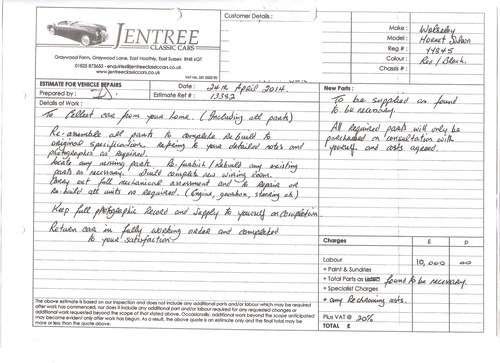 JENTREE
CLASSIC CARS
Graywood Farm, Graywood Lane, East Hoathly, East Sussex BN8 6QT
01825 873653 - enquiries@jentreeclassiccars.co.uk
www.jentreeclassiccars.co.uk
Customer Details :
Make : Wolseley
Model : Hornet Saloon
Reg # :
Colour : Red / Black.
Chassis # :
ESTIMATE FOR VEHICLE REPAIRS
Prepared by :
Date : 24th April 2014.
Estimate Ref # : 13382
Details of Work :
To Collect car from your home. (Including all parts)
Re-assemble all parts to complete re-build to
original specification refering to your detailed notes and
photographs as required.
Locate any missing parts. Re-furbish / Rebuild any existing
parts as necessary. Built complete new wiring loom.
Carry out full mechanical assessment and to repair or
Re-build all units as required. (Engine, gearbox, steering etc)
Keep full photographic Record and supply to yourself on completion.
Return car in fully working order and completed
to your satisfaction
New Parts :
To be supplied as found
to be necessary.
All Required parts will only be
purchased on consultation with
yourself and costs agreed.
Charges £ p
Labour 10,000 00
+ Paint & Sundries
+ Total Parts as found to be necessary.
+ Specialist Charges
+ any Rechroming costs.
Plus VAT @ 20%
TOTAL £
The above estimate is based on our inspection and does not include any additional parts and/or labour which may be required
after work has commenced, nor does it include any additional parts and/or labour required for any requested changes or
additional work requested beyond the scope of that stated above. Occasionally, additional work beyond the scope anticipated
may become evident only after work has begun. As a result, the above quote is an estimate only and the final total may be
more or less than the quote above.